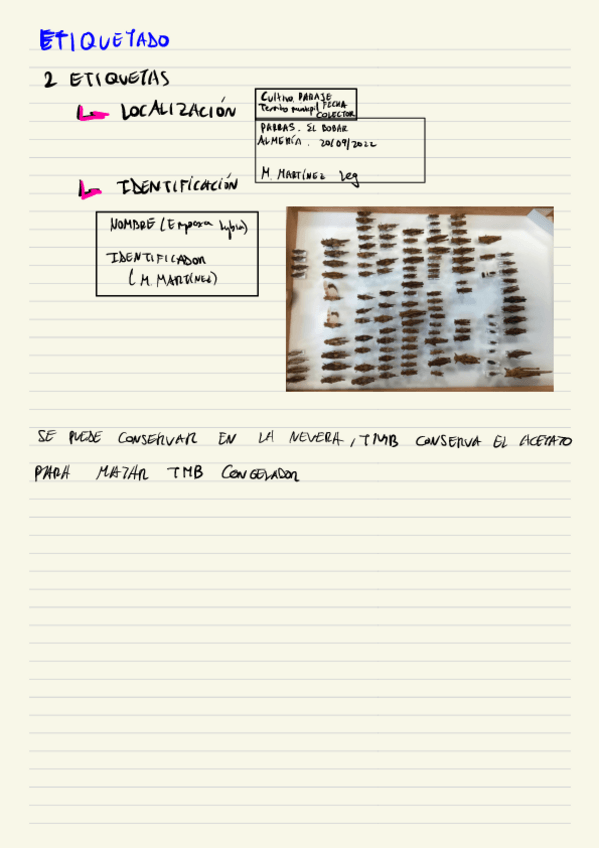 ETIQUETADO
2 ETIQUETAS
LOCALIZACIÓN
Cultivo, PARAJE
Termino municipal, FECHA
COLECTOR
PARRAS. EL BOBAR
ALMERÍA. 20/09/2022
M. MARTÍNEZ leg
IDENTIFICACIÓN
NOMBRE (Empoasca lybica)
IDENTIFICADOR
(M. MARTÍNEZ)
SE PUEDE CONSERVAR EN LA NEVERA, TMB CONSERVA EL ACETATO
PARA MATAR TMB CONGELADOR